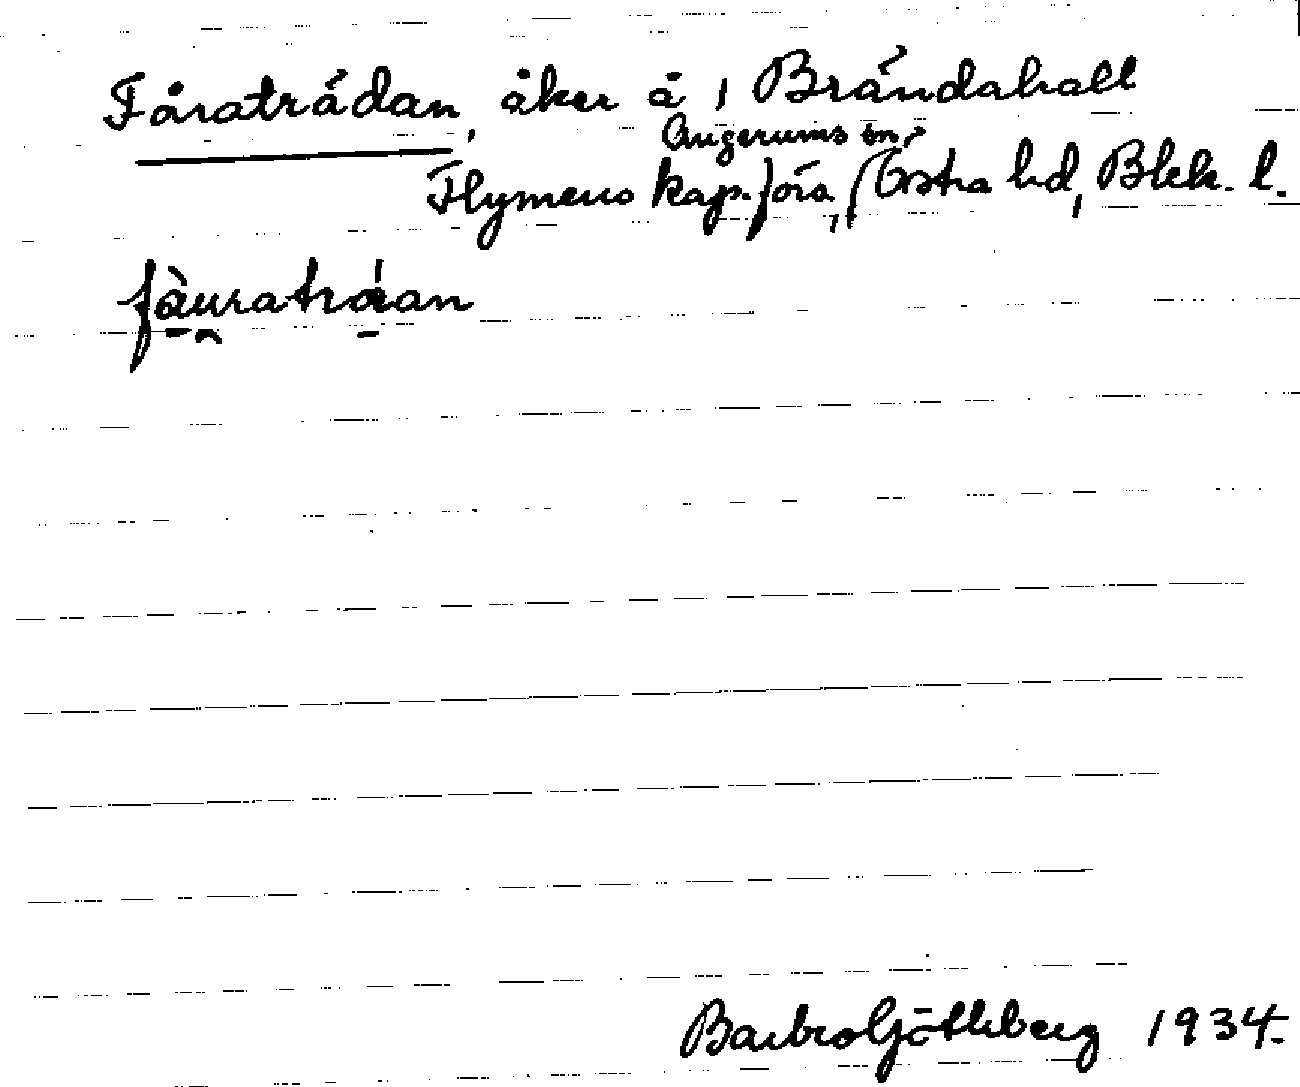 Fåraträdan, åker å 1 Brändahall
Augerums sn,
Flymens kap.förs, Östra hd, Blek. l.
fàuratráan
Barbro Götheberg 1934.